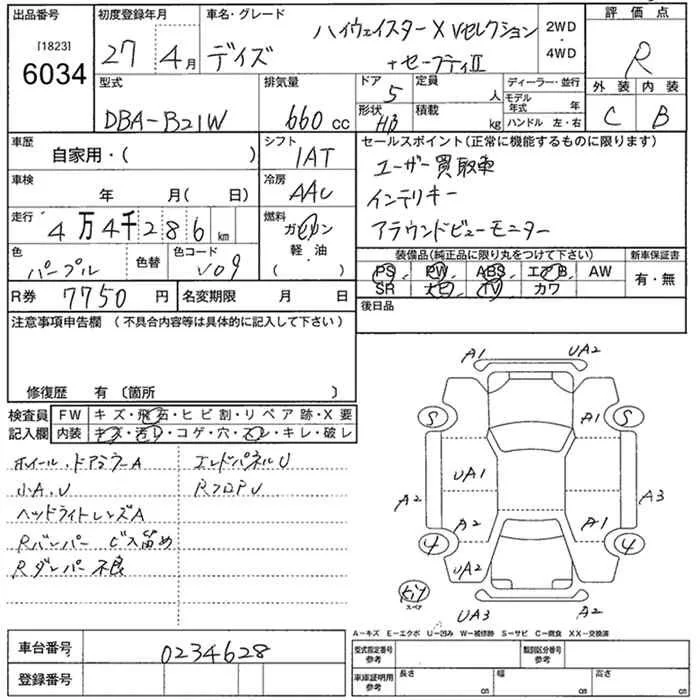 出品番号
[1823]
6034
初度登録年月
27 4月
車名・グレード
デイズ
ハイウェイスターX Vセレクション
+セーフティII
2WD
・
4WD
評価点
R
外装 内装
C B
型式
DBA-B21W
排気量
660 cc
ドア 5
形状 HB
定員 人
積載 kg
ディーラー・並行
モデル年式 年
ハンドル 左・右
車歴
自家用・( )
シフト
IAT
車検
年 月( 日)
冷房
AAC
走行
4万4千286km
燃料
ガソリン
軽・油
( )
色
パープル
色替
色コード
V09
R券 7750円
名変期限 月 日
セールスポイント(正常に機能するものに限ります)
ユーザー買取車
インテリキー
アラウンドビューモニター
装備品(純正品に限り丸をつけて下さい)
新車保証書
PS PW ABS エアB AW
SR ナビ TV カワ
有・無
後日品
注意事項申告欄(不具合内容等は具体的に記入して下さい)
修復歴 有〔箇所 〕
検査員
記入欄
FW キズ・飛石・ヒビ割・リペア跡・X要
内装 キズ・汚レ・コゲ・穴・スレ・キレ・破レ
ホイール、ドアミラーA
エンドパネルU
小A、U
RフロアU
ヘッドライトレンズA
Rバンパー ビス留め
Rダンパー不良
A1
UA2
S
A1
S
UA1
A2
A3
A2
A1
4
UA2
4
キリ
スペア
UA3
A2
A-キズ E-エクボ U-凹み W-補修跡 S-サビ C-腐食 XX-交換済
車台番号 0234628
登録番号
型式指定番号
参考
類別区分番号
参考
車庫証明用
参考
長さ cm
幅 cm
高さ cm